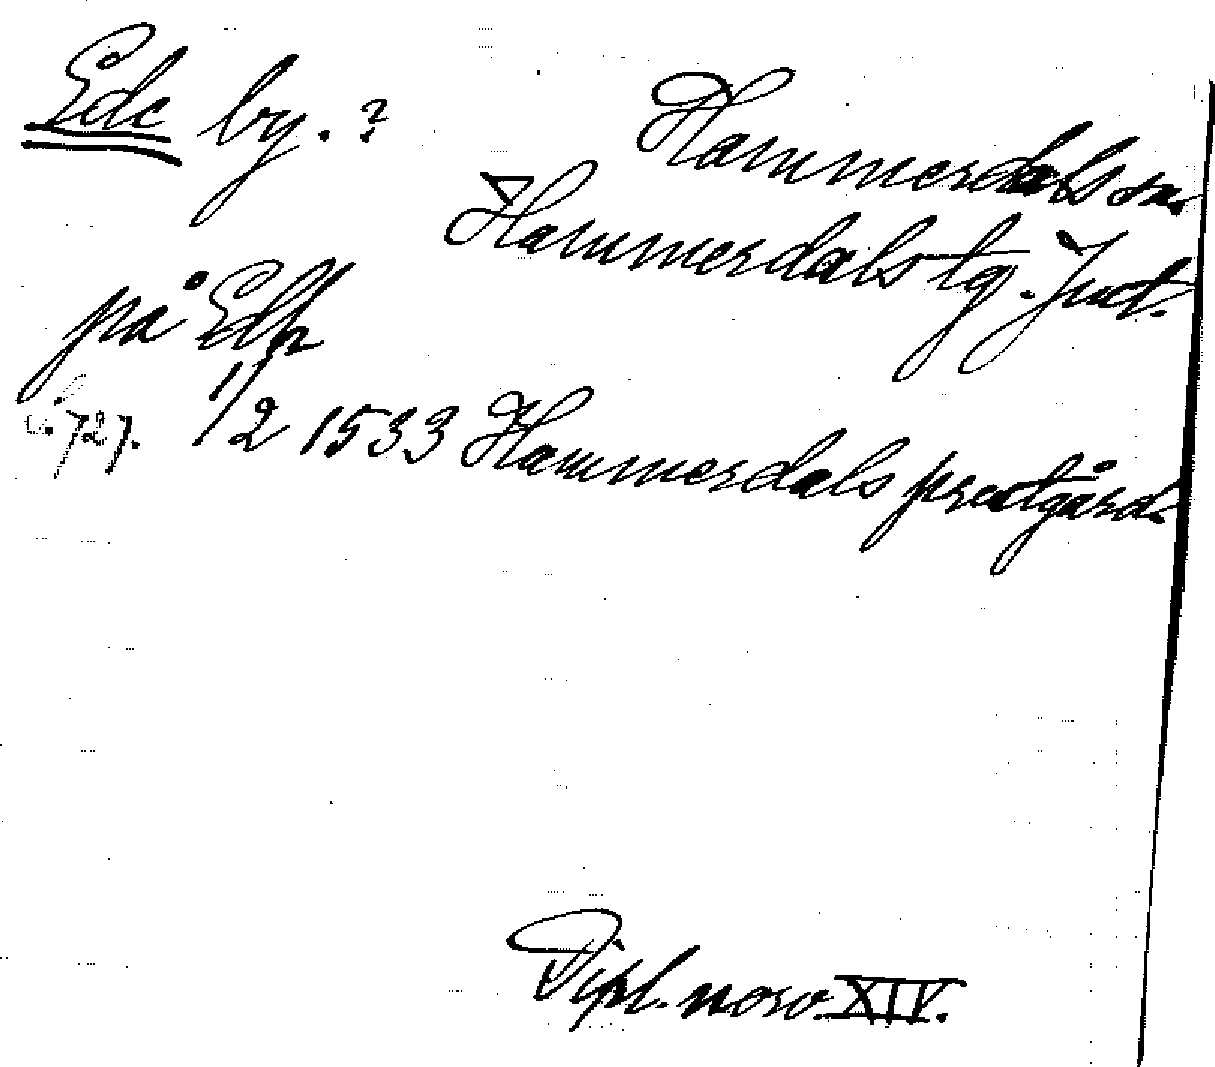 Ede by. ? Hammerdals sn.
Hammerdals tg. Jmtl.
på Edh
s. 727. 1/2 1533 Hammerdals prestgård.
Dipl. norv. XIV.